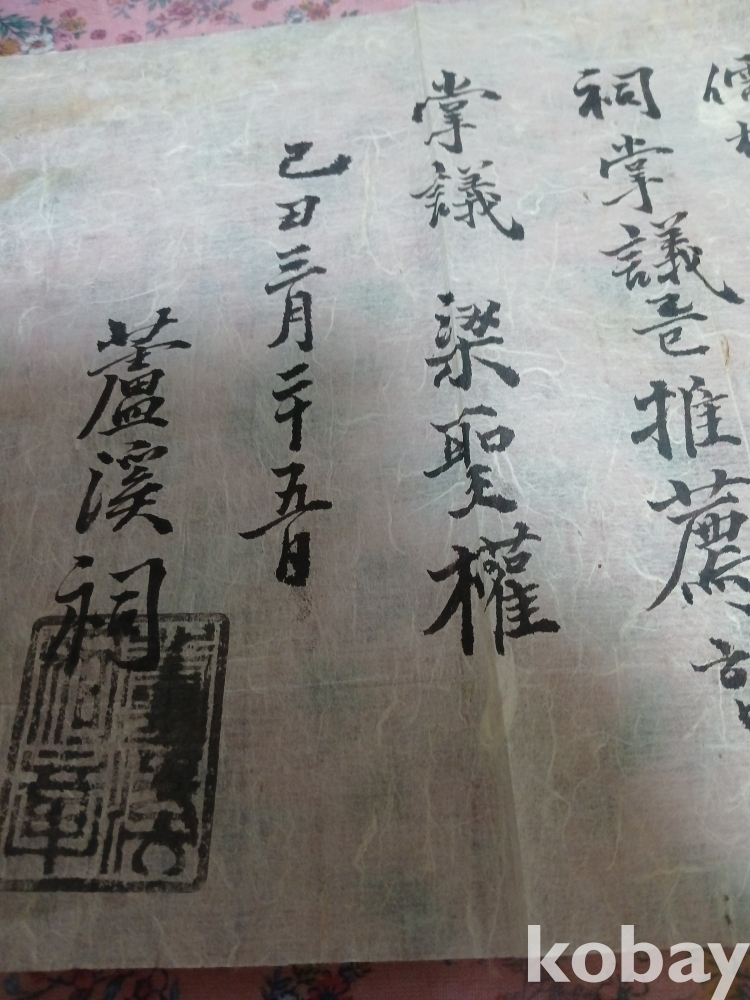 儒
祠掌議望推薦
掌議 梁聖權
己丑三月二十五日
蘆溪祠
kobay